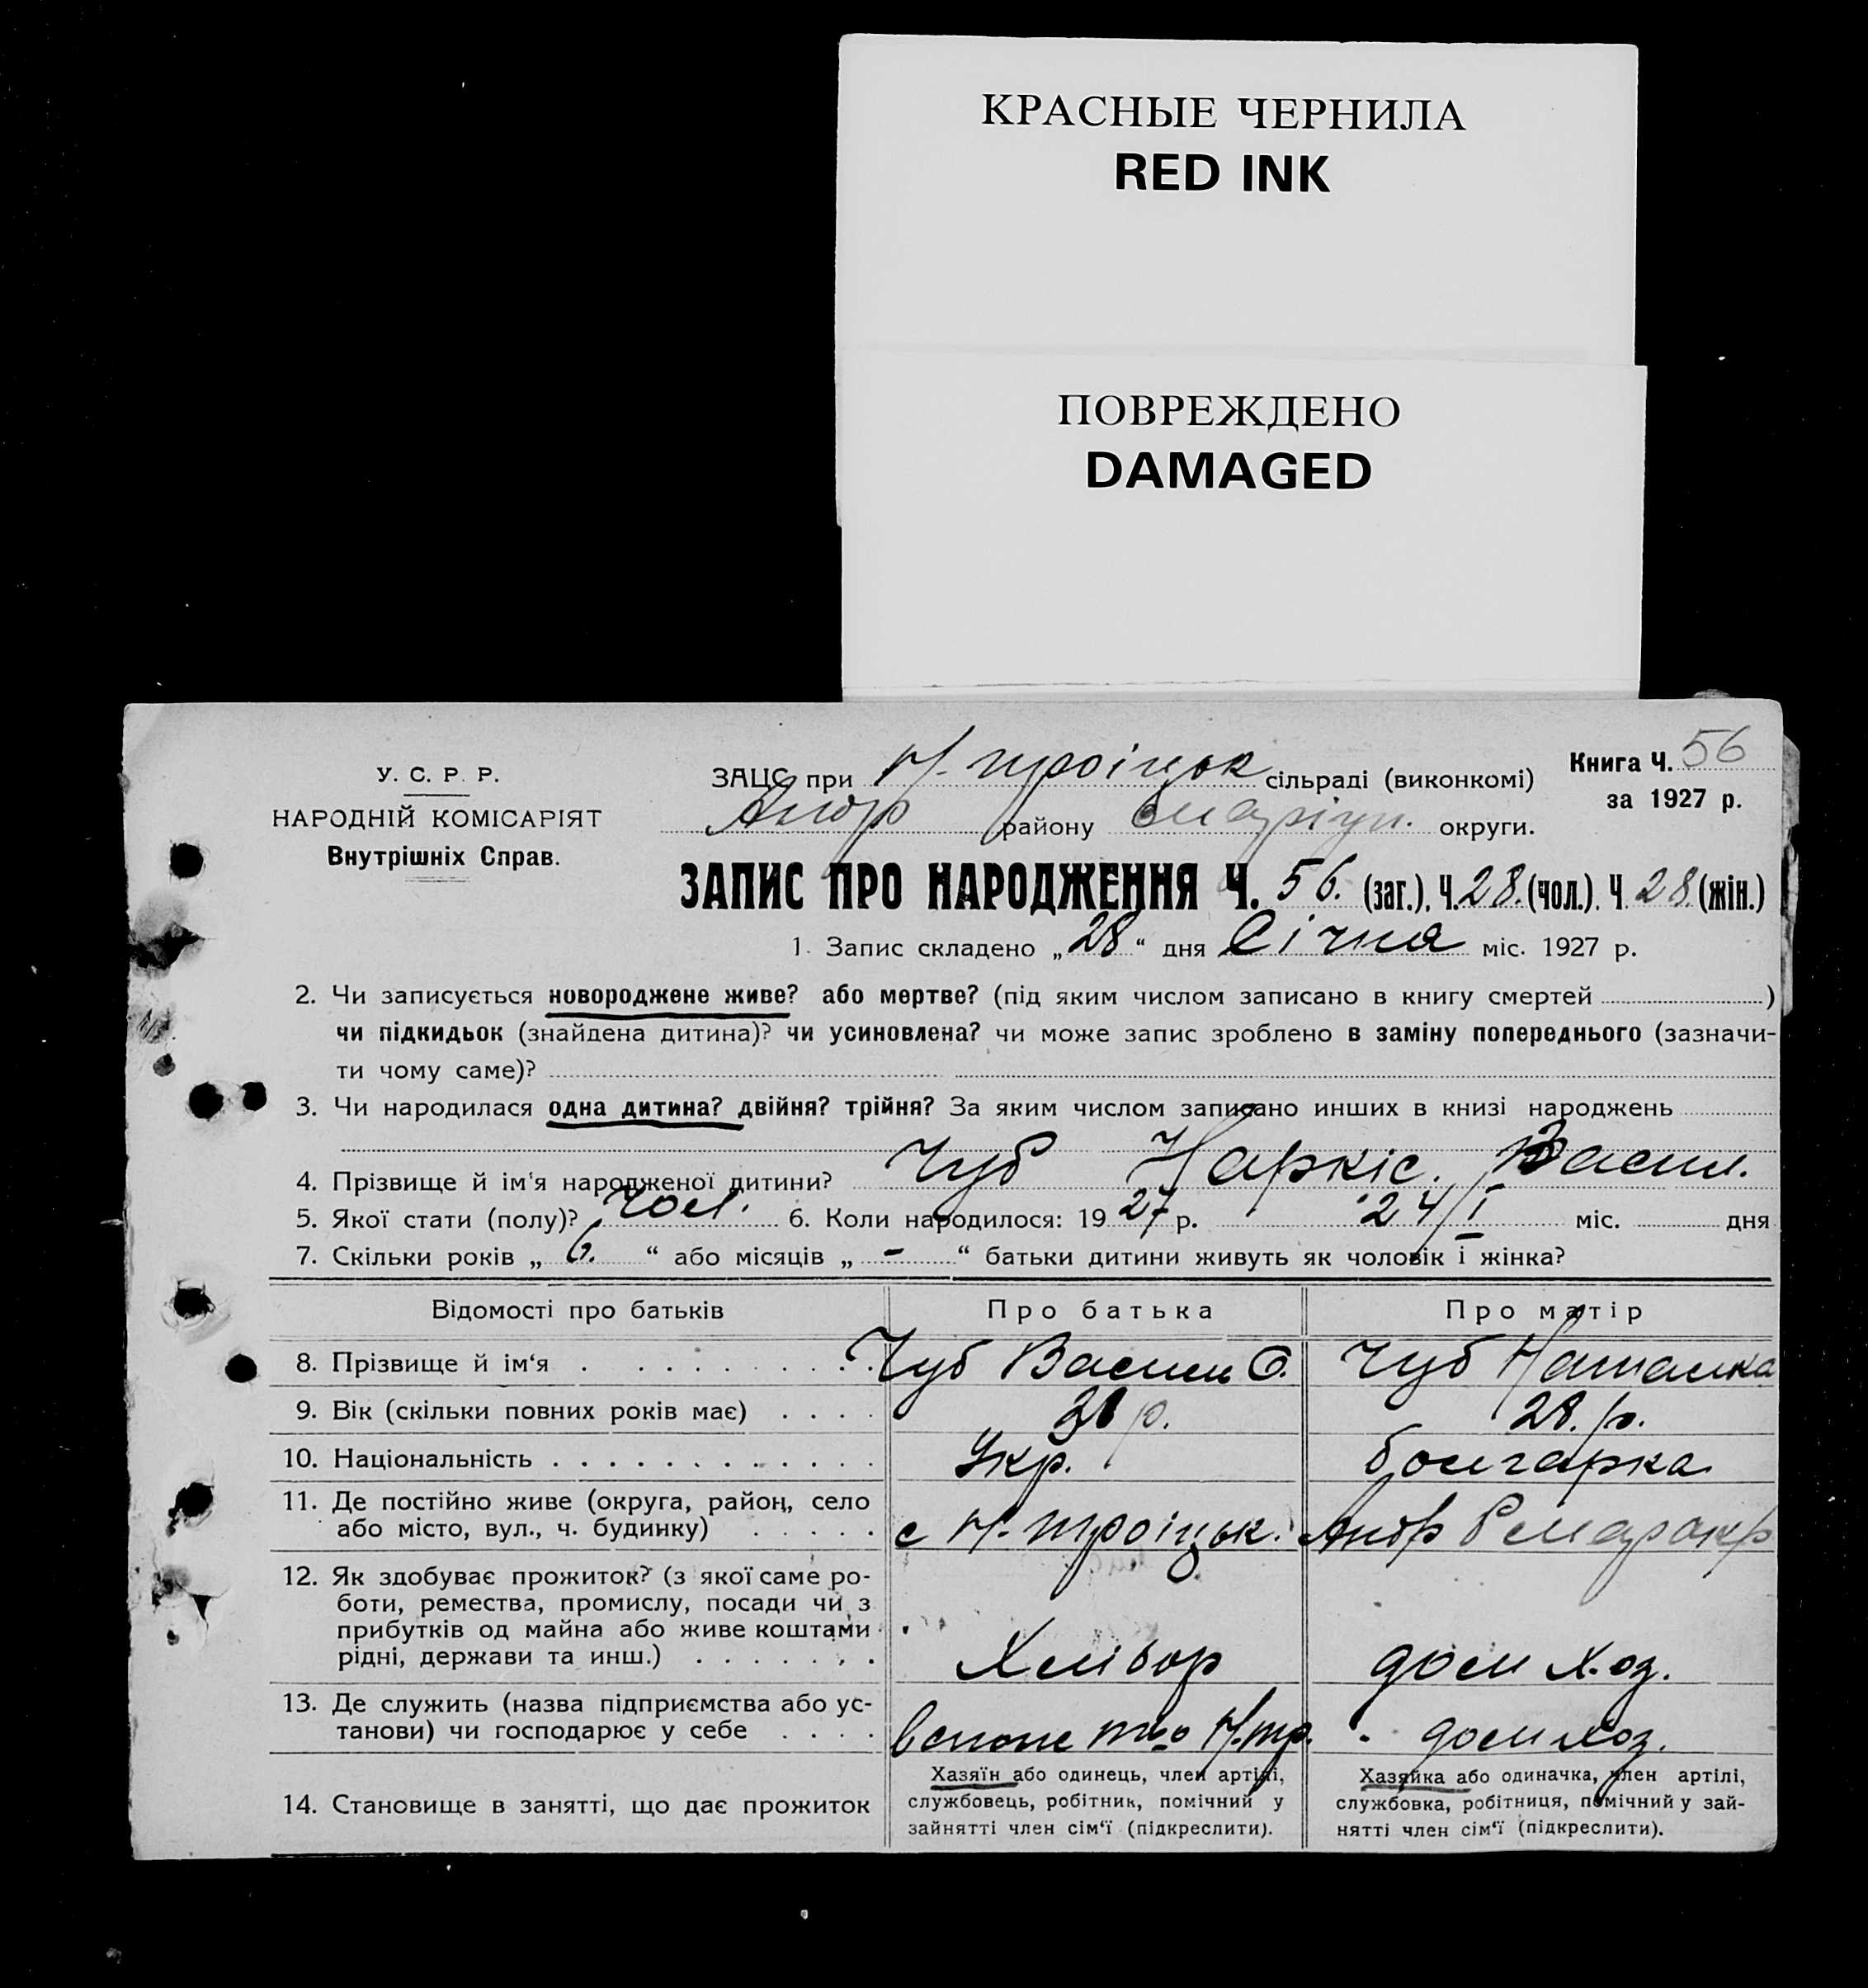 КРАСНЫЕ ЧЕРНИЛА
RED INK
ПОВРЕЖДЕНО
DAMAGED
У. С. Р. Р.
НАРОДНІЙ КОМІСАРІЯТ
Внутрішніх Справ.
ЗАЦС при Н. Троіцьк сільраді (виконкомі)
Андр району Маріуп. округи.
Книга Ч. 56
за 1927 р.
ЗАПИС ПРО НАРОДЖЕННЯ Ч. 56. (заг.). Ч. 28. (чол.). Ч. 28. (жін.)
1. Запис складено „28“ дня Січня міс. 1927 р.
2. Чи записується новороджене живе? або мертве? (під яким числом записано в книгу смертей )
чи підкидьок (знайдена дитина)? чи усиновлена? чи може запис зроблено в заміну попереднього (зазначи-
ти чому саме)?
3. Чи народилася одна дитина? двійня? трійня? За яким числом записано инших в книзі народжень
4. Прізвище й ім'я народженої дитини? Чуб Наркіс. Васил.
5. Якої стати (полу)? чол. 6. Коли народилося: 1927 р. 24/I міс. дня
7. Скільки років „ 6. “ або місяців „ - “ батьки дитини живуть як чоловік і жінка?
Відомості про батьків Про батька Про матір
8. Прізвище й ім'я . . . . . . . . . Чуб Васил О. Чуб Наталка
9. Вік (скільки повних років має) . . . . р. 28. р.
10. Національність . . . . . . . . . . . . . Укр. болгарка
11. Де постійно живе (округа, район, село
або місто, вул., ч. будинку) . . . . . с Н. Троіцьк. Андр
12. Як здобуває прожиток? (з якої саме ро-
боти, ремества, промислу, посади чи з
прибутків од майна або живе коштами
рідні, держави та инш.) . . . . . . . Хлібор дом хоз.
13. Де служить (назва підприємства або ус-
танови) чи господарює у себе . . . . Н. тр. дом хоз.
14. Становище в занятті, що дає прожиток
Хазяїн або одинець, член артілі,
службовець, робітник, помічний у
зайнятті член сім'ї (підкреслити).
Хазяйка або одиначка, член артілі,
службовка, робітниця, помічний у зай-
нятті член сім'ї (підкреслити).